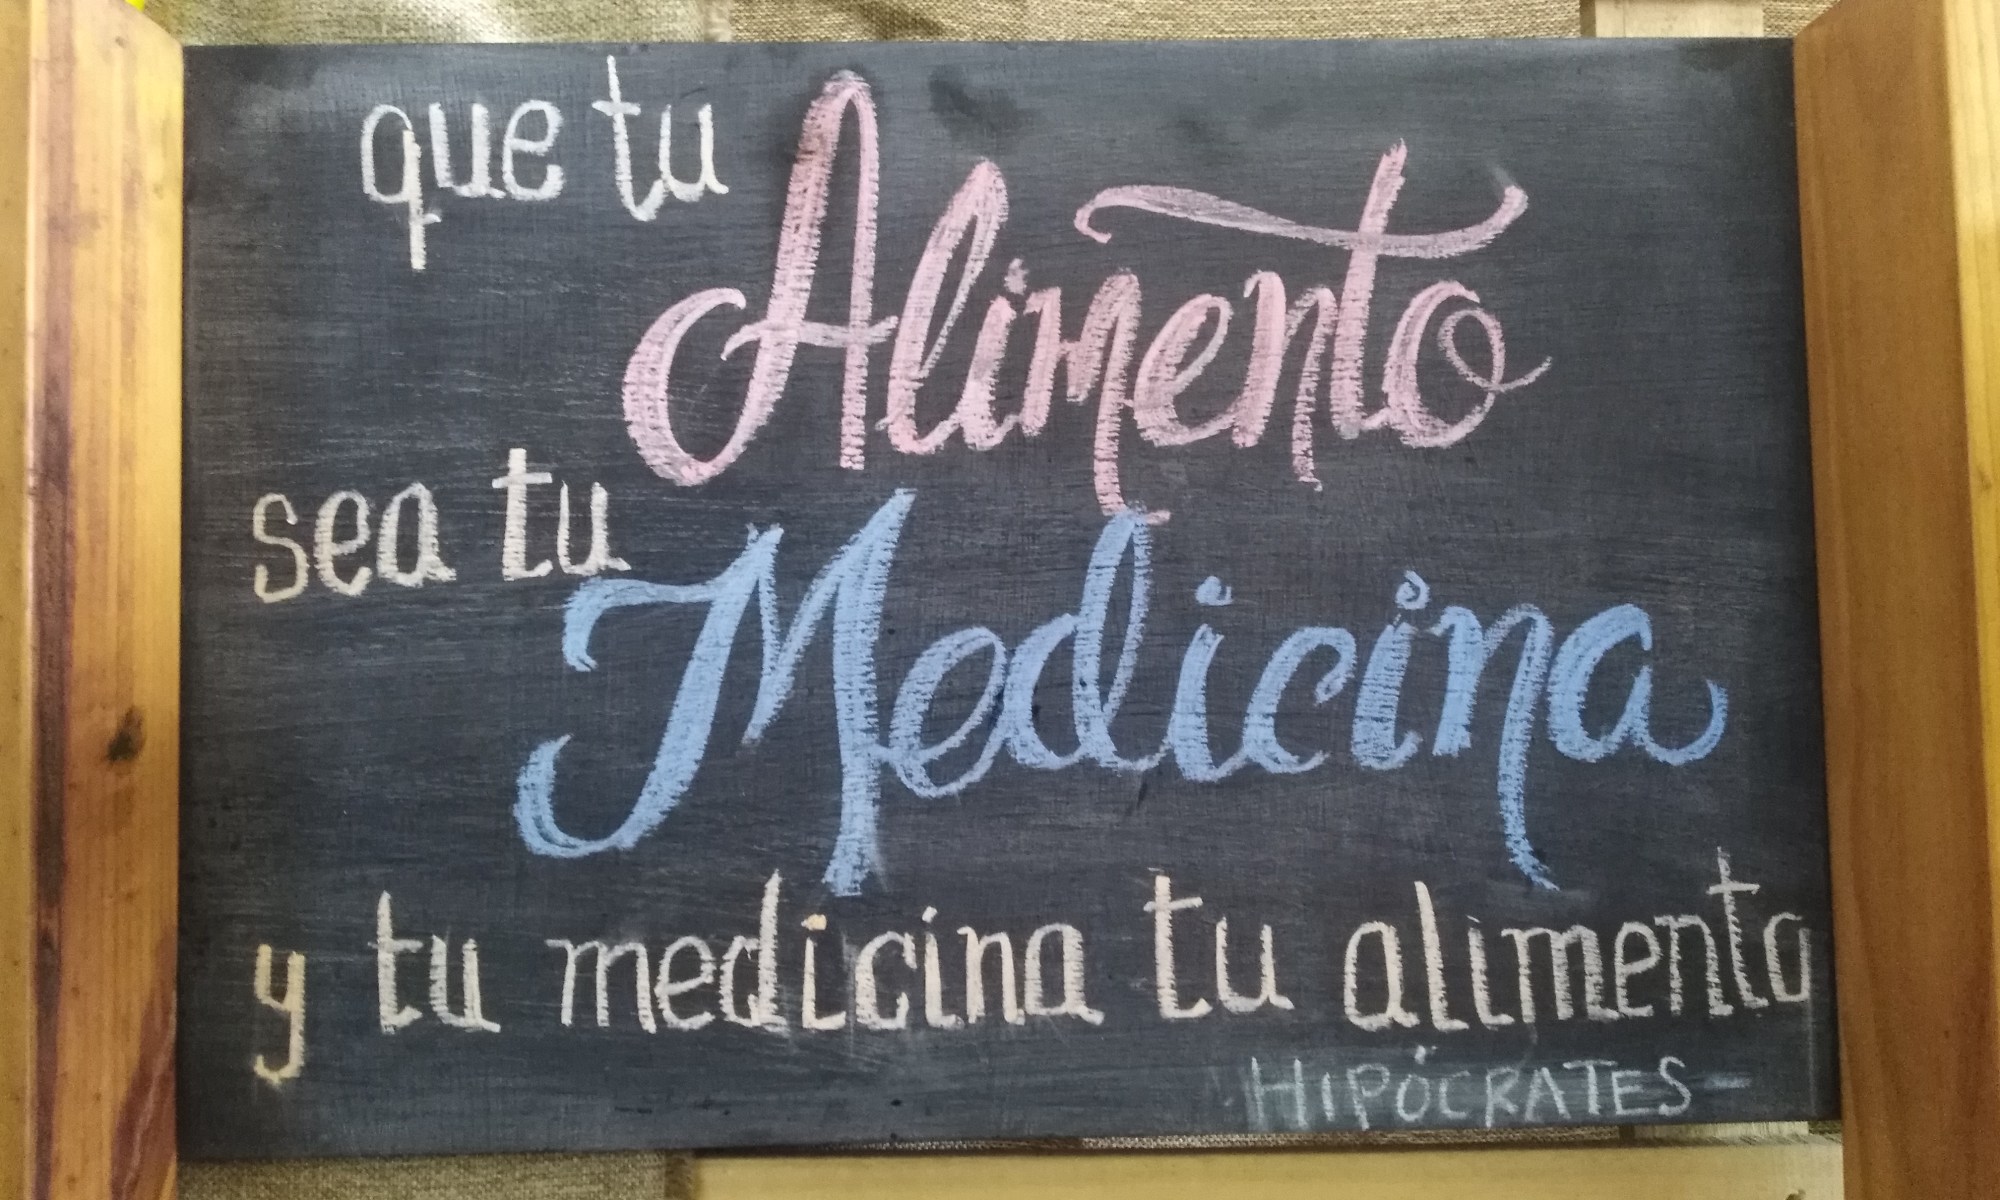 que tu Alimento
sea tu Medicina
y tu medicina tu alimento
HIPÓCRATES-